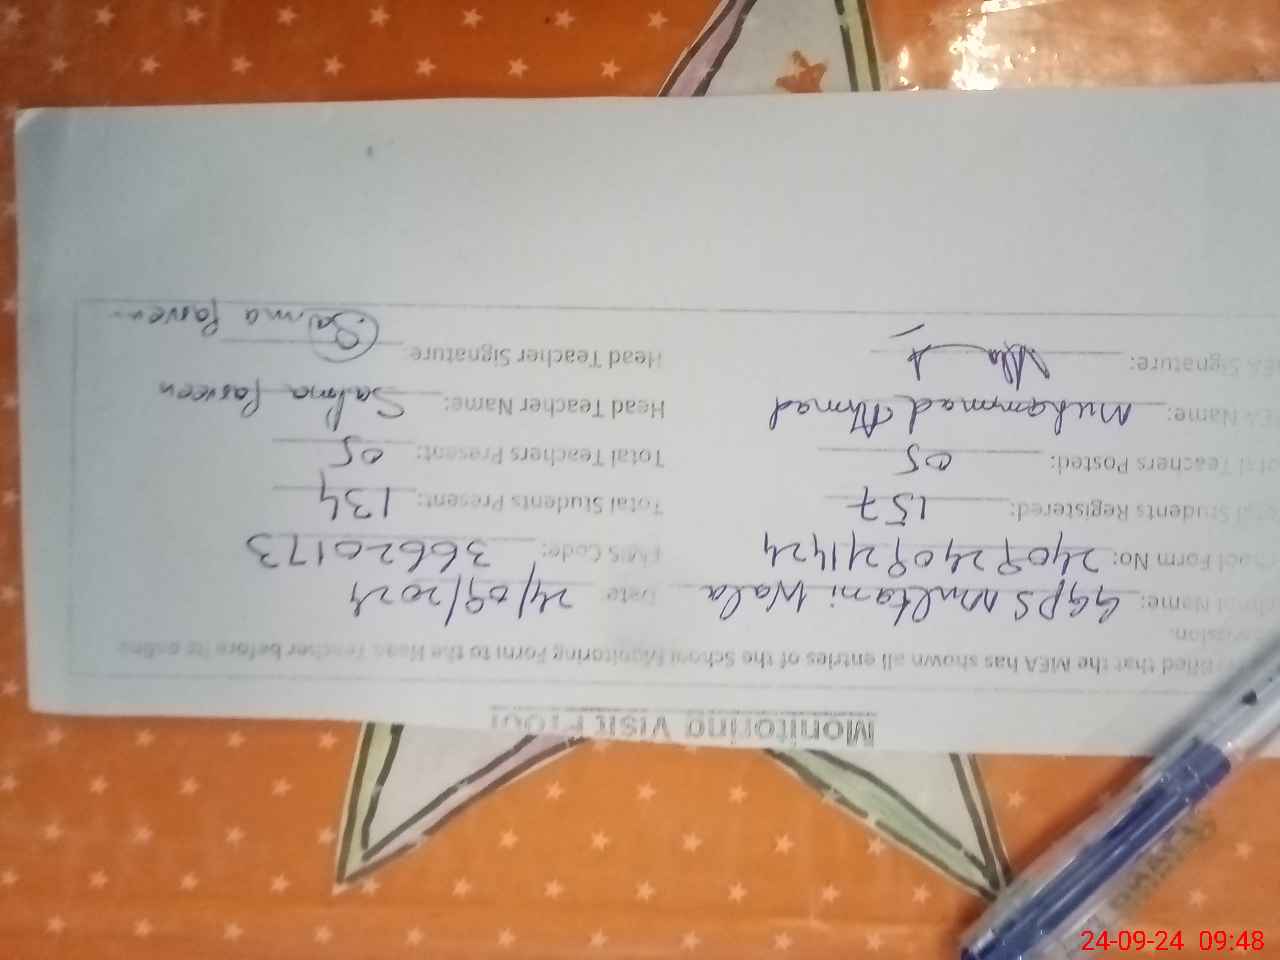 Monitoring Visit Proof
that the MEA has shown all entries of the School Monitoring Form to the Head Teacher before its online
School Name: GGPS Multani Wala Date: 24/09/2024
Form No: 240924091424 EMIS Code: 36620173
Total Students Registered: 157 Total Students Present: 134
Total Teachers Posted: 05 Total Teachers Present: 05
MEA Name: Muhammad Ahmad Head Teacher Name: Salma Parveen
MEA Signature: Head Teacher Signature: Salma Parveen
24-09-24 09:48